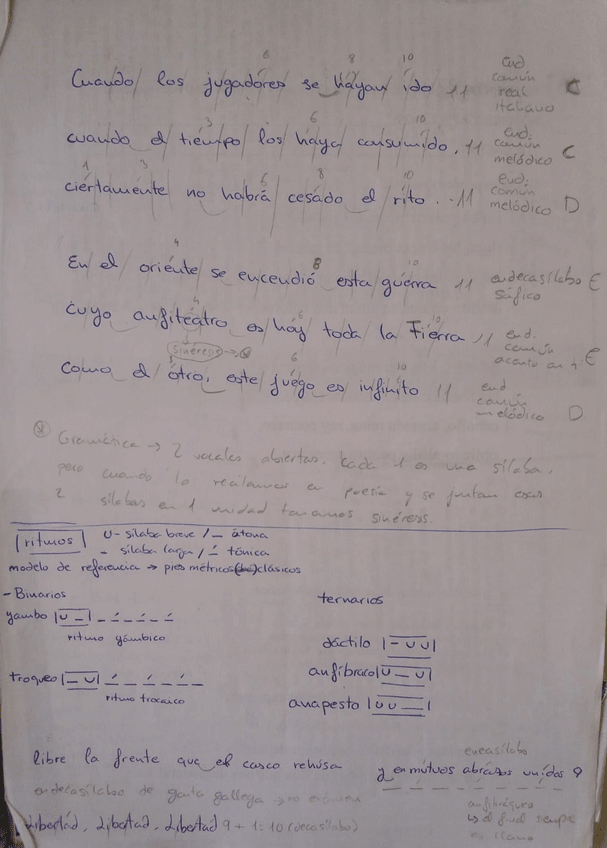 6 8 10
Cuando los jugadores se hayan ido 11 end. común real italiano C
3 6 10
cuando el tiempo los haya consumido, 11 end. común melódico C
1 3 6 8 10
ciertamente no habrá cesado el rito. 11 end. común melódico D
4 8 10
En el oriente se encendió esta guerra 11 endecasílabo sáfico E
4 6 10
cuyo anfiteatro es hoy toda la Tierra 11 end. común acento en 4ª E
sinéresis →
3 6 10
como el otro, este juego es infinito 11 end común melódico D
Gramática → 2 vocales abiertas. Cada 1 es una sílaba,
pero cuando lo recitamos en poesía y se juntan esas
2 sílabas en 1 unidad tenemos sinéresis.
ritmos U - sílaba breve / _ átona
- sílaba larga / _́ tónica
modelo de referencia → pies métricos clásicos
- Binarios ternarios
yambo |U _| _ _́ _ _́ _ _́
ritmo yámbico dáctilo |_ U U|
troqueo |_ U| _́ _ _́ _ _́ _ anfíbraco |U _ U|
ritmo trocaico
anapesto |U U _|
eneasílabo
libre la frente que el casco rehúsa y en mútuos abrazos unidos 9
endecasílabo de gaita gallega → no examen
anfibráquico
Libertad, Libertad, Libertad 9 + 1 = 10 (decasílabo) ↳ el final siempre es llano